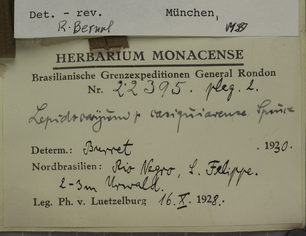 Det. - rev. München,
R. Bernal
HERBARIUM MONACENSE
Brasilianische Grenzexpeditionen General Rondon
Nr. 22395. pleg. 2.
Lepidocaryum casiquiarense Spruce
Determ.: Burret 1930.
Nordbrasilien: Rio Negro, S. Felippe.
2-3m Urwald.
Leg. Ph. v. Luetzelburg 16. X. 1928.